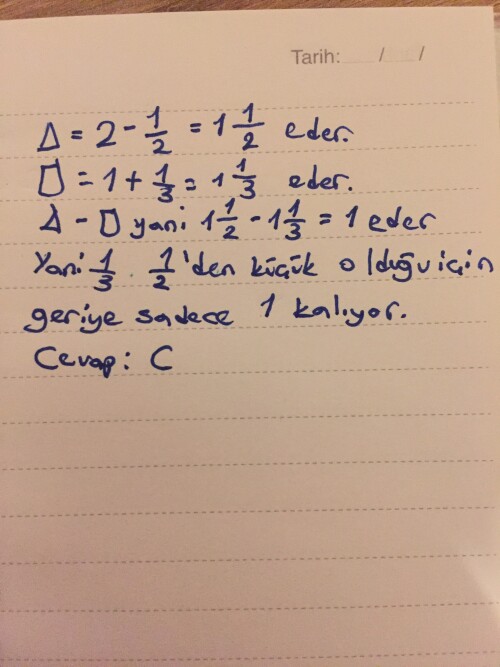 Tarih: / /
Δ = 2 - 1/2 = 1 1/2 eder.
□ = 1 + 1/3 = 1 1/3 eder.
Δ - □ yani 1 1/2 - 1 1/3 = 1 eder
Yani 1/3 . 1/2'den küçük olduğu için
geriye sadece 1 kalıyor.
Cevap: C